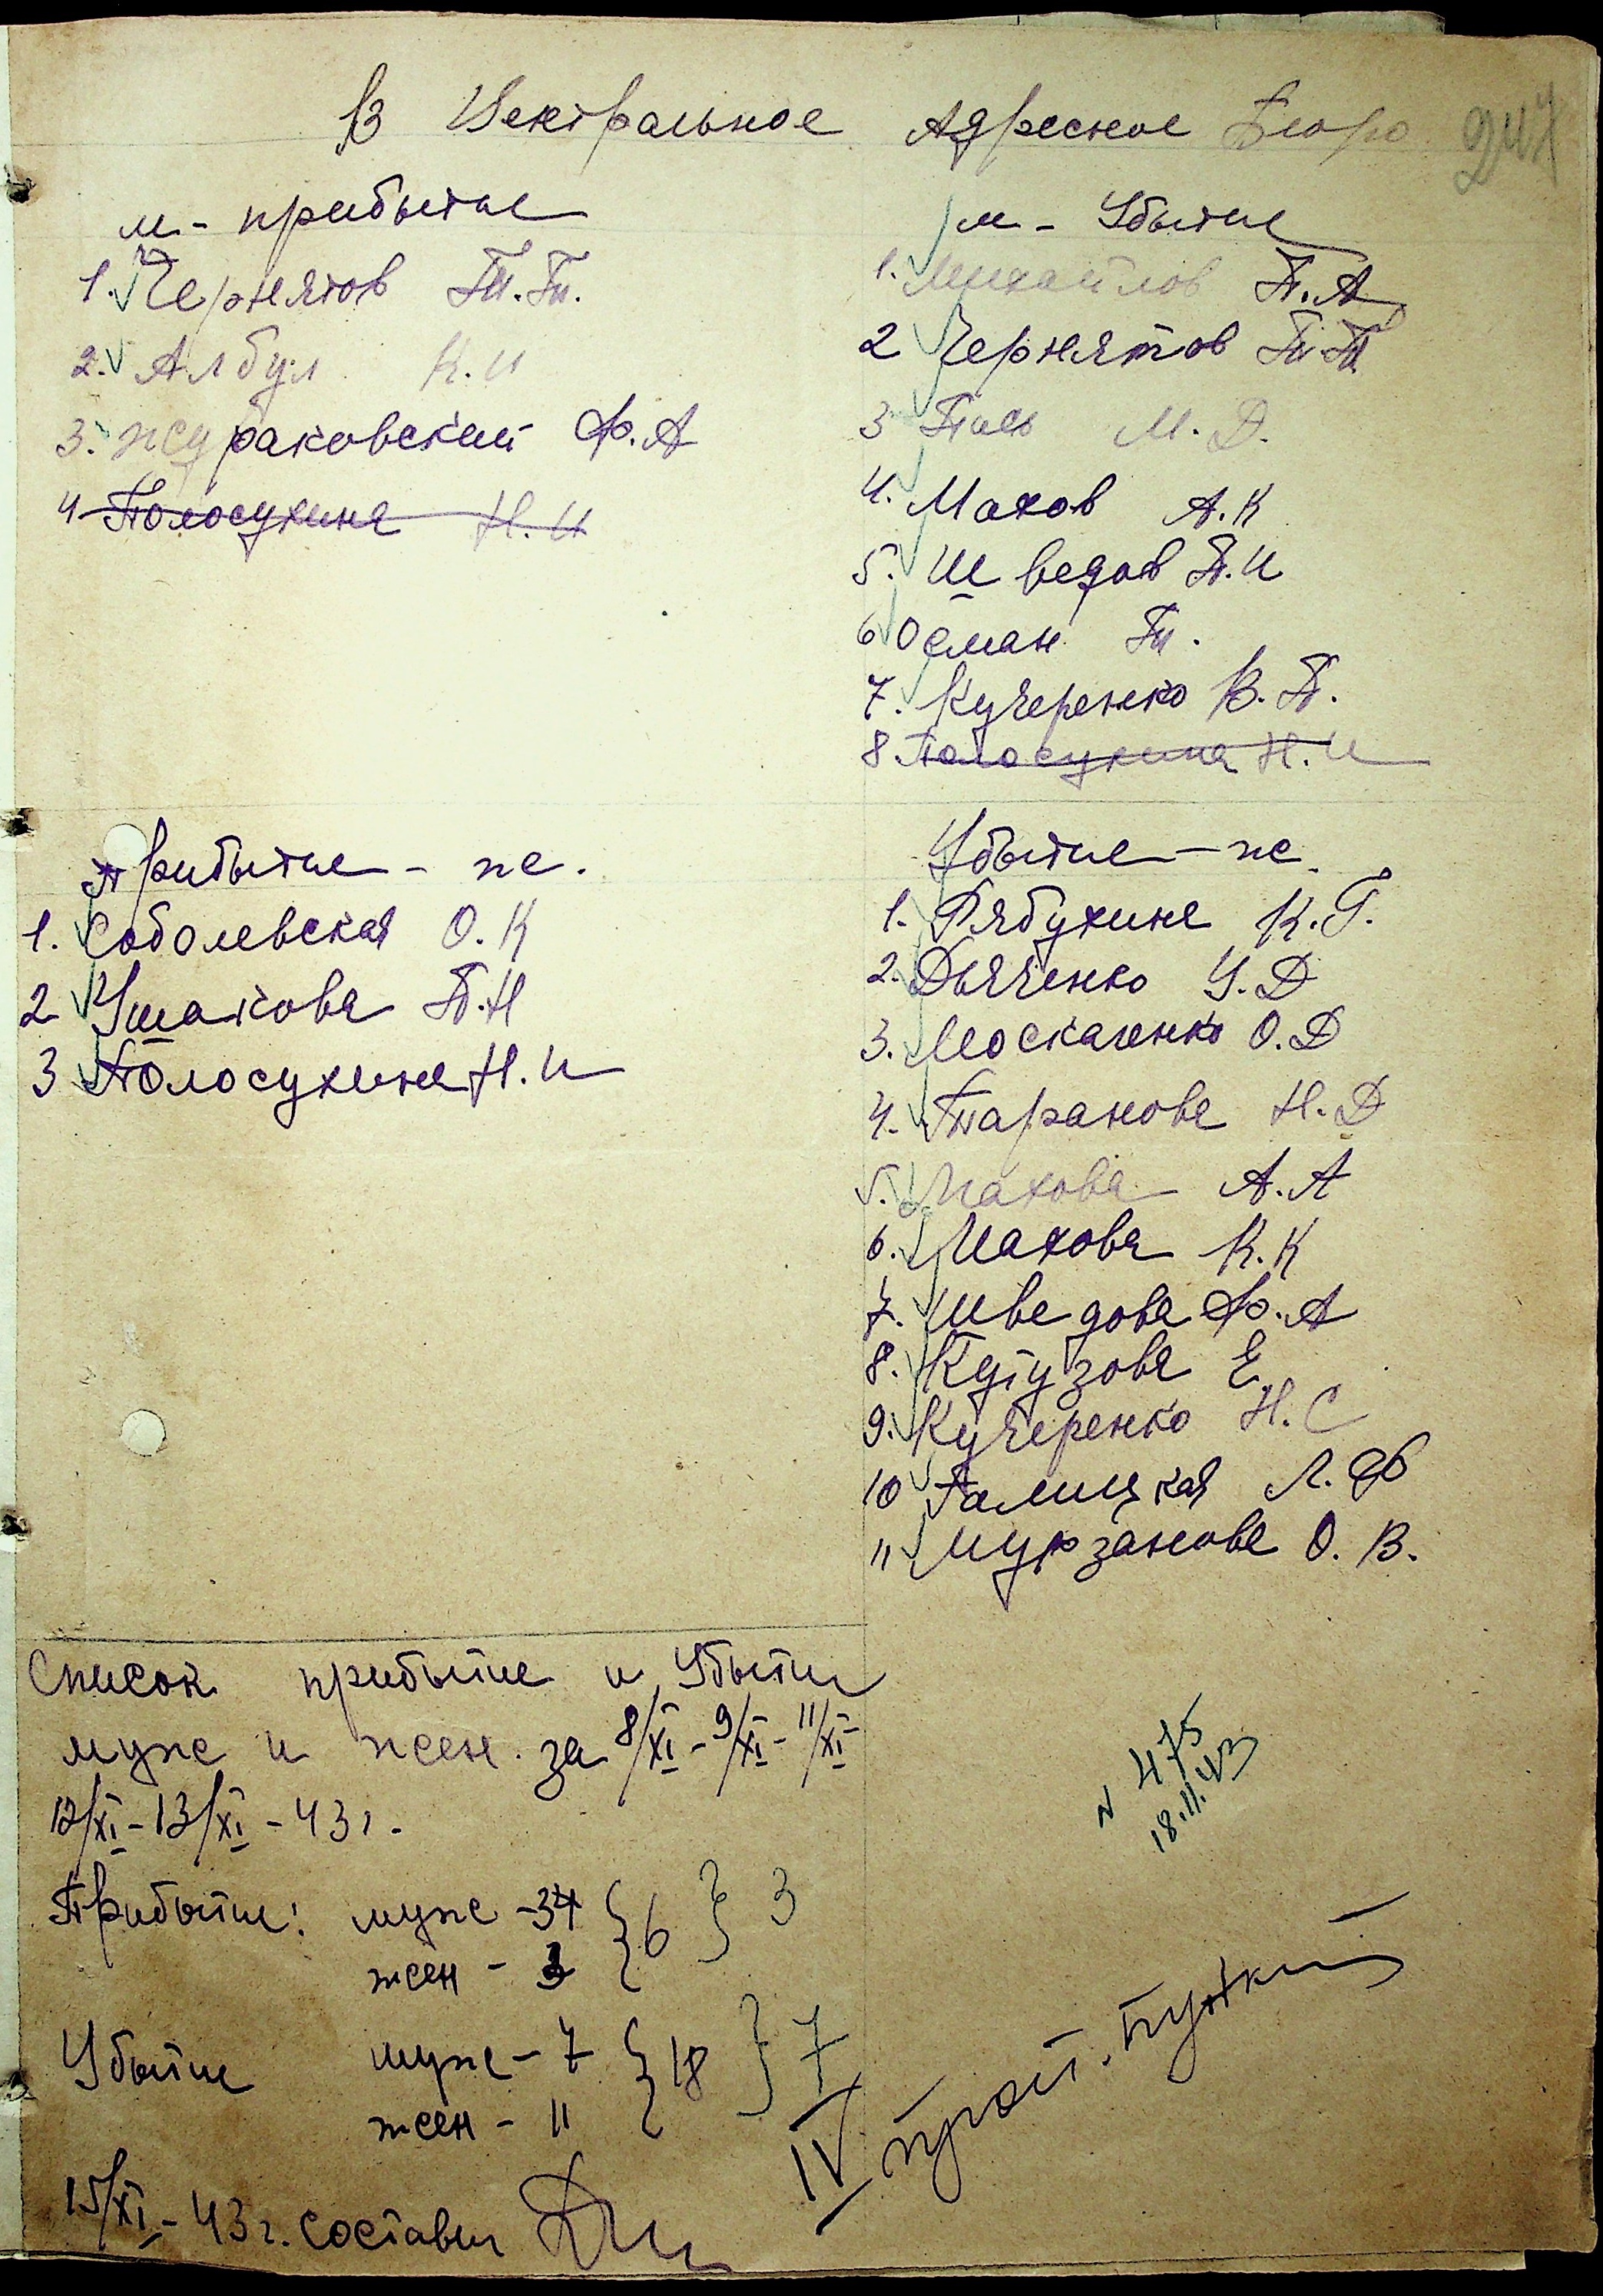 В Центральное Адресное Бюро
247
м - прибытие
1. Чернятов П.П.
2. Албул К.И
3. Жураковский Ф.А
4 Полосухина Н.И
м - Убытие
1. Михайлов П.А
2 Чернятов П.П
3 М.Д.
4. Махов А.К
5. Шведов П.И
6 Осман П.
7. Кучеренко В.П.
8 Полосухина Н.И
Прибытие - ж.
1. Соболевская О.К
2 Ушакова П.Н
3 Полосухина Н.И
Убытие - ж.
1. Рябухина К.Г.
2. Дьяченко У.Д
3. Москаленко О.Д
4. Таранова Н.Д
5. Махова А.А
6. Махова К.К
7. Шведова Ф.А
8. Кутузова Е.
9. Кучеренко Н.С
10 Галицкая Л.Ф
11 Мурзанова О.В.
Список прибытие и Убытие
муж и жен. за 8/XI - 9/XI - 11/XI -
12/XI - 13/XI - 43 г.
N 475
18.11.43
Прибытие: муж - 3 } 6 } 3
жен - 3
Убытие муж - 7 } 18 } 7
жен - 11
IV
15/XI - 43 г. составил